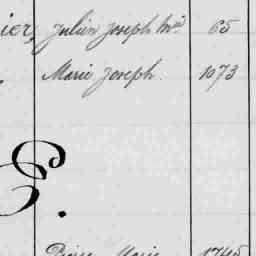 ier, Julien Joseph Md 65
Marie Joseph. 1073
E.
Marie